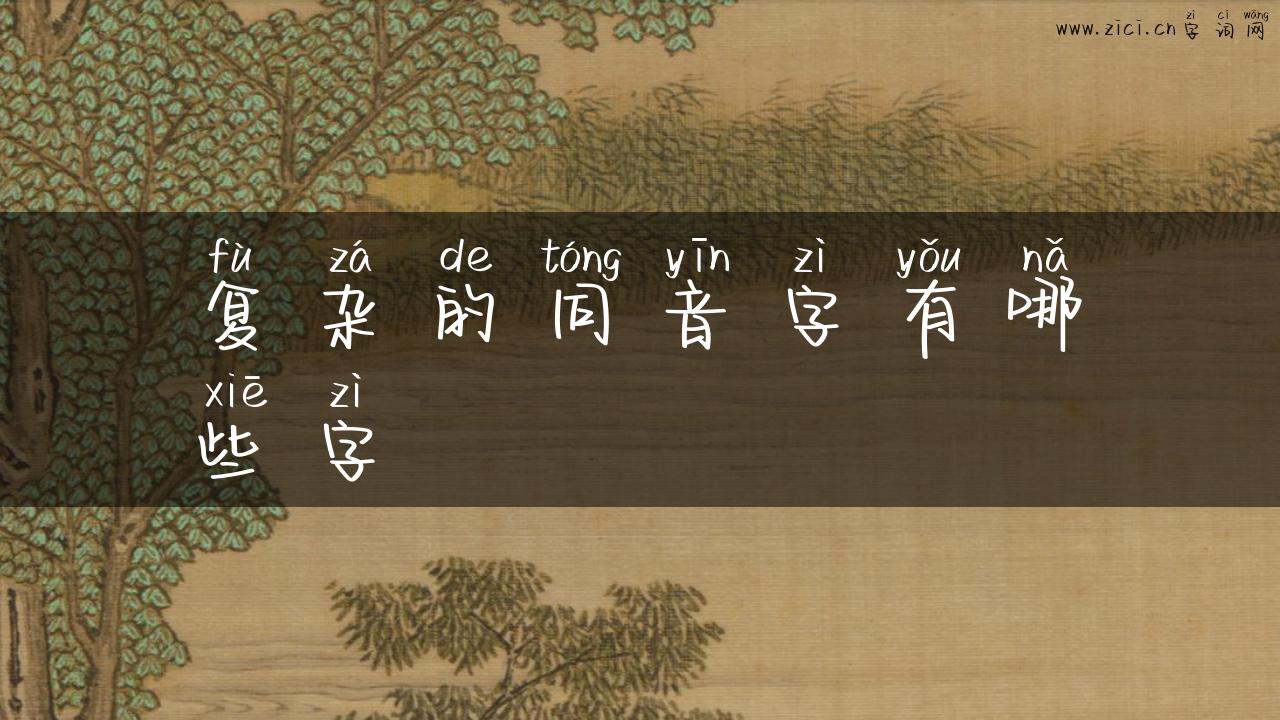 zì cí wǎng
www.zici.cn 字 词 网
fù zá de tóng yīn zì yǒu nǎ
复 杂 的 同 音 字 有 哪
xiē zì
些 字